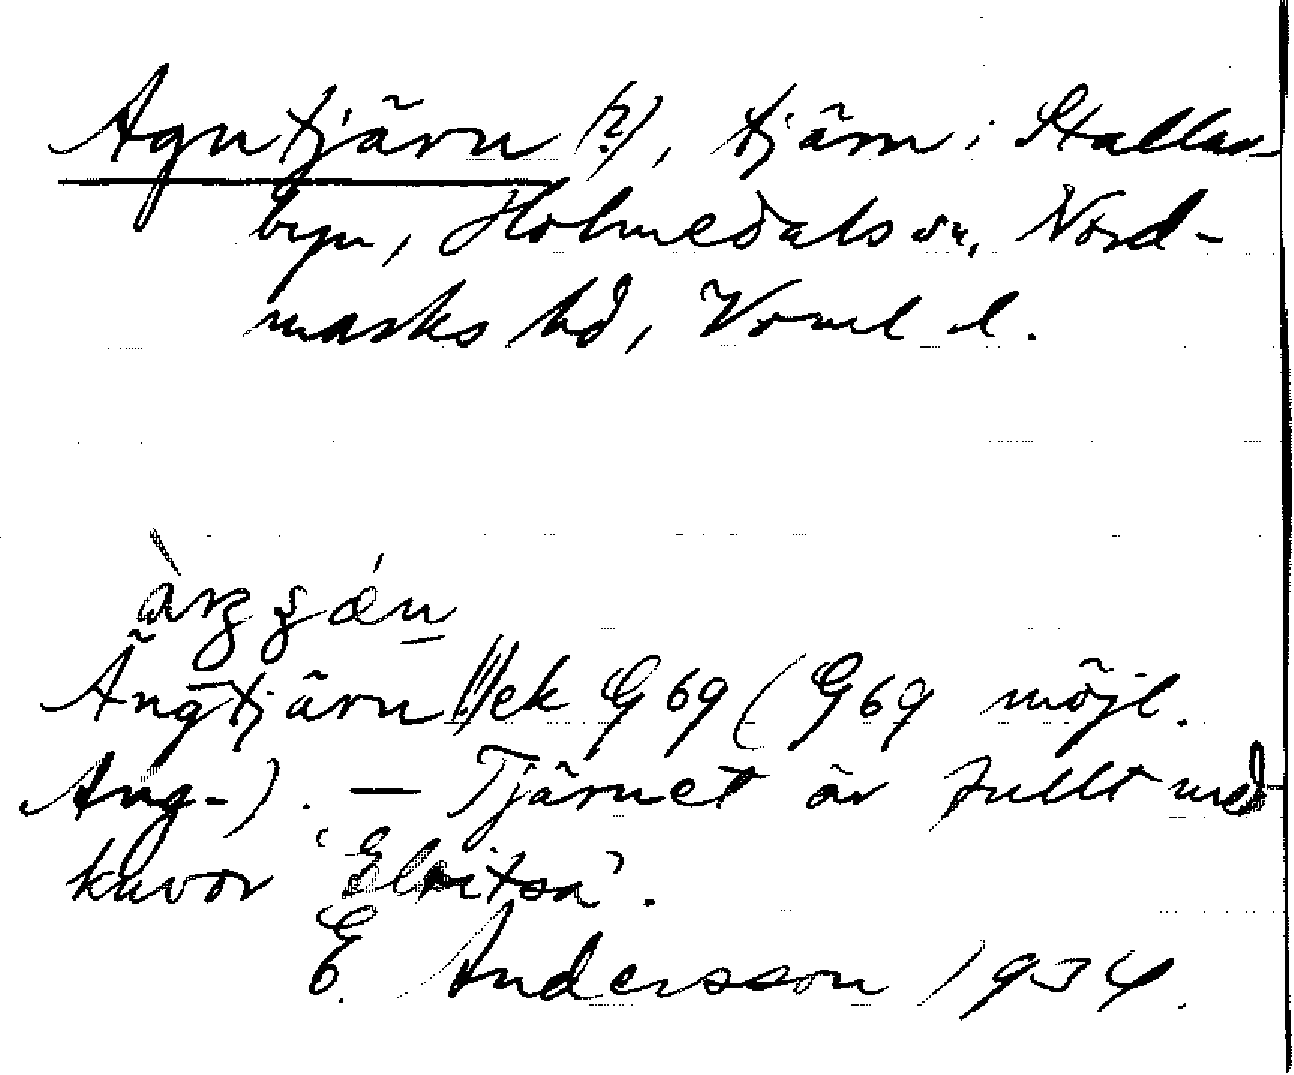 Agntjärn (?), tjärn i Stallar-
byn, Holmedals sn, Nord-
marks hd, Vrml l.
Ängtjärn (!) ek G 69 (G 69 möjl.
Ang-). — Tjärnet är fullt med
kavor
E. Andersson 1934.